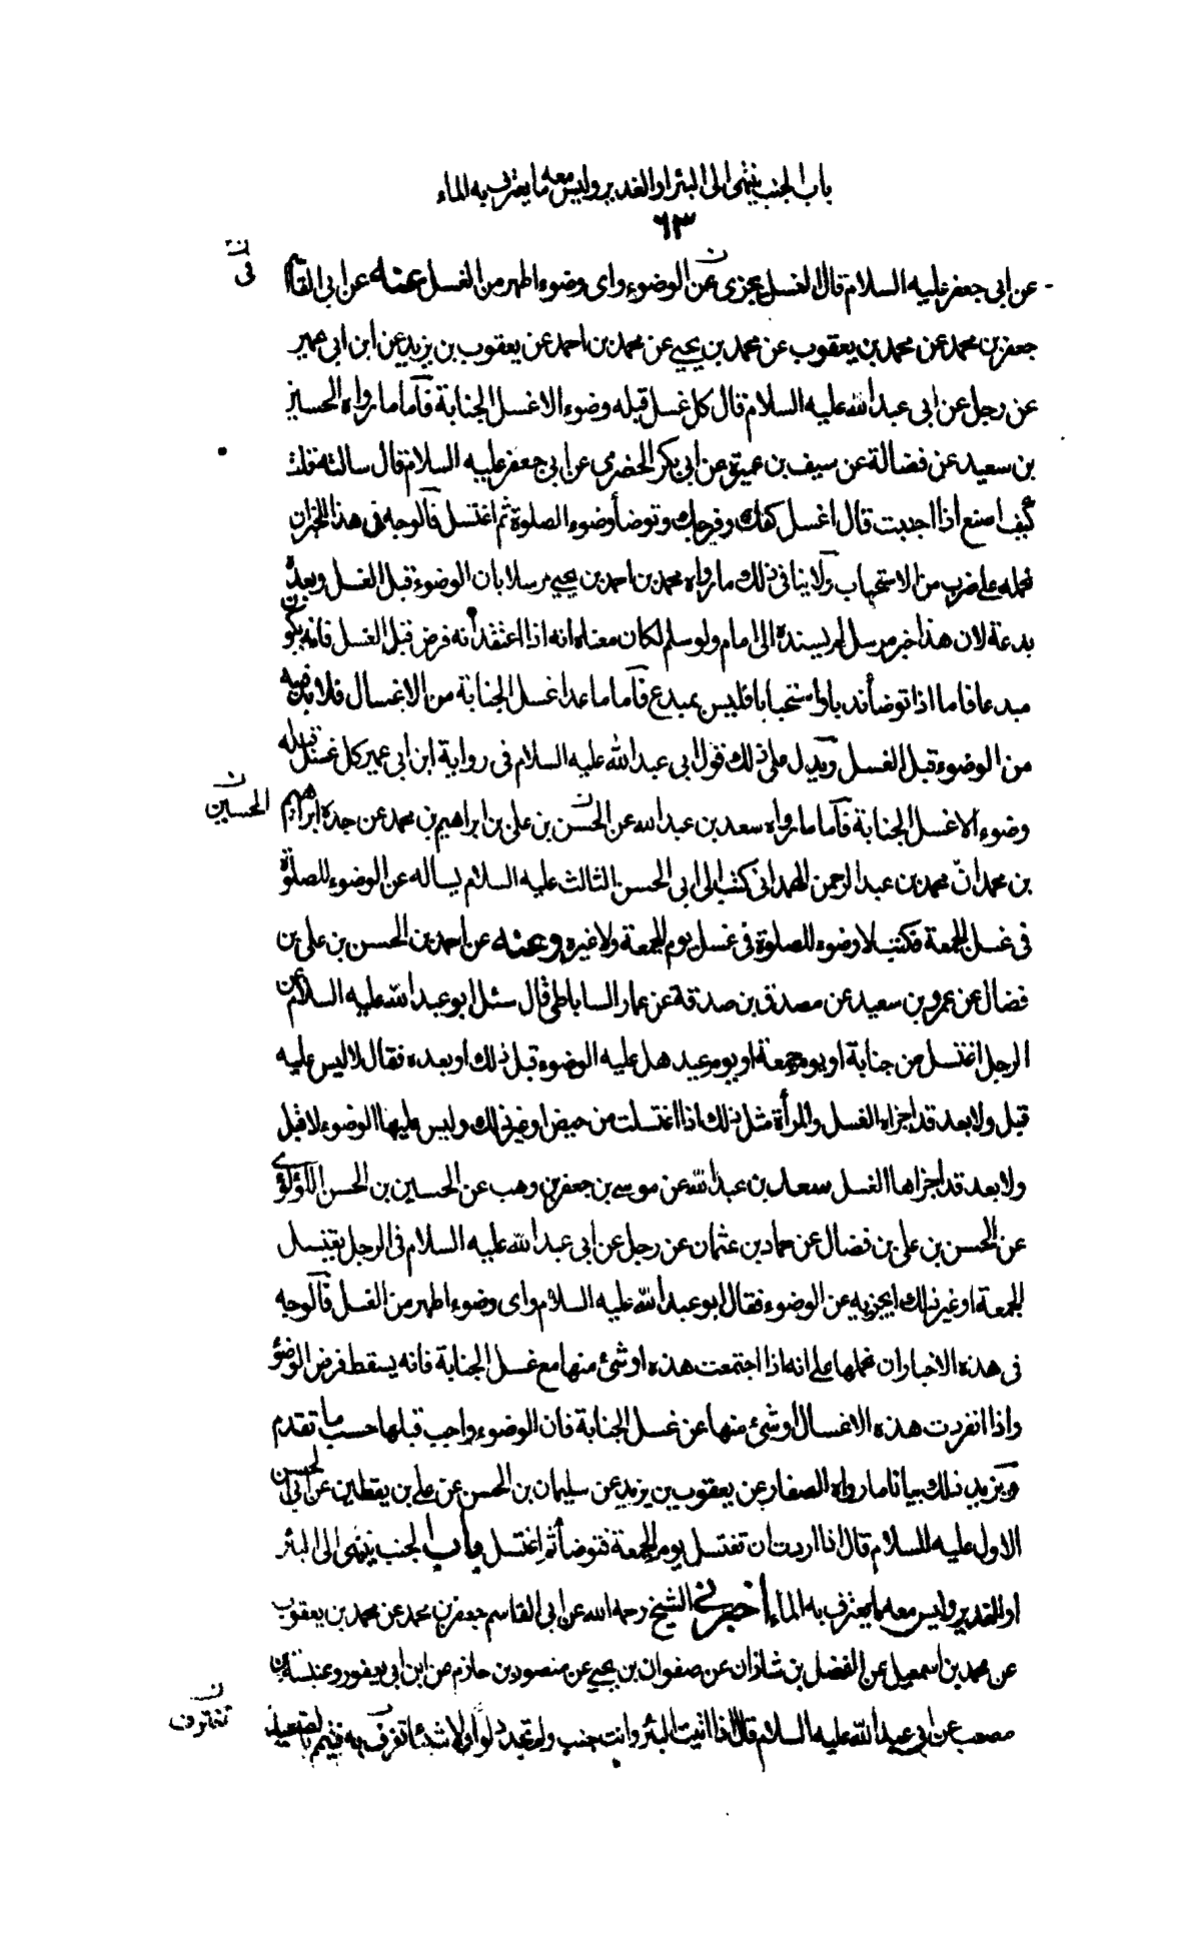 باب الجنب ينتهى الى البئر او الغدير وليس معه ما يغترف به الماء
٦٣
ن
فى
عن ابى جعفر عليه السلام قال الغسل يجزى عن الوضوء واى وضوء اطهر من الغسل عنه عن ابى القاسم
جعفر بن محمد عن محمد بن يعقوب عن محمد بن يحيى عن محمد بن احمد عن يعقوب بن يزيد عن ابن ابى عمير
عن رجل عن ابى عبد الله عليه السلام قال كل غسل قبله وضوء الا غسل الجنابة فآما ما رواه الحسين
بن سعيد عن فضالة عن سيف بن عميرة عن ابى بكر الحضرمى عن ابى جعفر عليه السلام قال سالته قلت
كيف اصنع اذا اجنبت قال اغسل كفك وفرجك وتوضأ وضوء الصلوة ثم اغتسل فآلوجه فى هذا الخبر ان
نحمله على ضرب من الاستحباب ولا ينافى ذلك ما رواه محمد بن احمد بن يحيى مرسلا بان الوضوء قبل الغسل وبعده
بدعة لان هذا خبر مرسل لم يسنده الى امام ولو سلم لكان معناه انه اذا اعتقد انه فرض قبل الغسل فانه يكون
مبدعا فاما اذا توضأ ندبا واستحبابا فليس بمبدع فآما ما عدا غسل الجنابة من الاغسال فلا بد فيه
من الوضوء قبل الغسل ويدل على ذلك قول ابى عبد الله عليه السلام فى رواية ابن ابى عمير كل غسل قبله
ن
الحسين
وضوء الا غسل الجنابة فآما ما رواه سعد بن عبد الله عن الحسن بن على بن ابراهيم بن محمد عن جده ابراهيم
بن محمد انّ محمد بن عبد الرحمن الهمدانى كتب الى ابى الحسن الثالث عليه السلام يساله عن الوضوء للصلوة
فى غسل الجمعة فكتب لا وضوء للصلوة فى غسل يوم الجمعة ولا غيره وعنه عن احمد بن الحسن بن على بن
فضال عن عمرو بن سعيد عن مصدق بن صدقة عن عمار الساباطى قال سئل ابو عبد الله عليه السلام عن
الرجل اغتسل من جنابة او يوم جمعة او يوم عيد هل عليه الوضوء قبل ذلك او بعده فقال لا ليس عليه
قبل ولا بعد قد اجزاه الغسل والمرأة مثل ذلك اذا اغتسلت من حيض او غير ذلك وليس عليها الوضوء لا قبل
ولا بعد قد اجزاها الغسل سعد بن عبد الله عن موسى بن جعفر بن وهب عن الحسين بن الحسن اللؤلؤى
عن الحسن بن على بن فضال عن حماد بن عثمان عن رجل عن ابى عبد الله عليه السلام فى الرجل يغتسل
للجمعة او غير ذلك ايجزيه عن الوضوء فقال ابو عبد الله عليه السلام واى وضوء اطهر من الغسل فآلوجه
فى هذه الاخبار ان نحملها على انه اذا اجتمعت هذه او شئ منها مع غسل الجنابة فانه يسقط فرض الوضوء
واذا انفردت هذه الاغسال او شئ منها عن غسل الجنابة فان الوضوء واجب قبلها حسب ما تقدم
ويزيد ذلك بيانا ما رواه الصفار عن يعقوب بن يزيد عن سليمان بن الحسن عن على بن يقطين عن ابى الحسن
الاول عليه السلام قال اذا اردت ان تغتسل يوم الجمعة فتوضأ ثم اغتسل باب الجنب ينتهى الى البئر
او الغدير وليس معه ما يغترف به الماء اخبرنى الشيخ رحمه الله عن ابى القاسم جعفر بن محمد عن محمد بن يعقوب
عن محمد بن اسمعيل عن الفضل بن شاذان عن صفوان بن يحيى عن منصور بن حازم عن ابن ابى يعفور وعنبسة بن
ن
تغترف
مصعب عن ابى عبد الله عليه السلام قال اذا اتيت البئر وانت جنب ولم تجد دلوا ولا شيئا تغرف به فتيمم بالصعيد